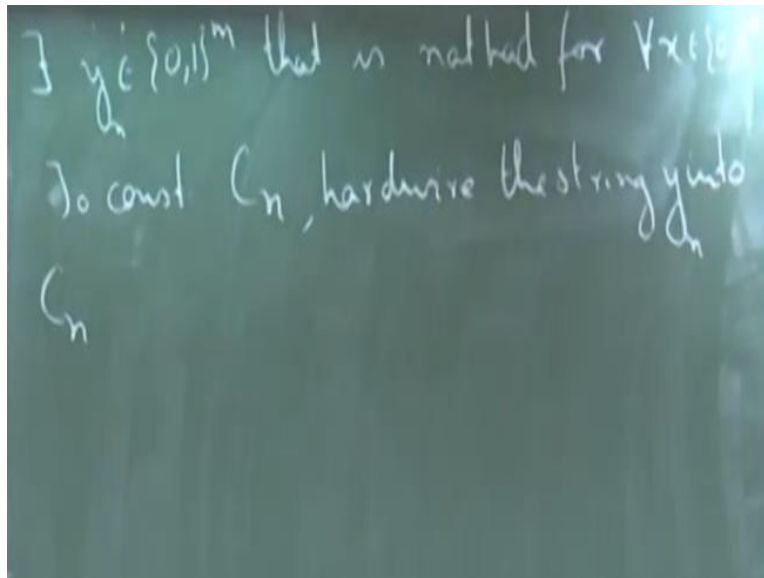 ∃ yₙ ∈ {0,1}ᵐ that is not bad for ∀x ∈ {0,
To const Cₙ, hardwire the string yₙ into
Cₙ